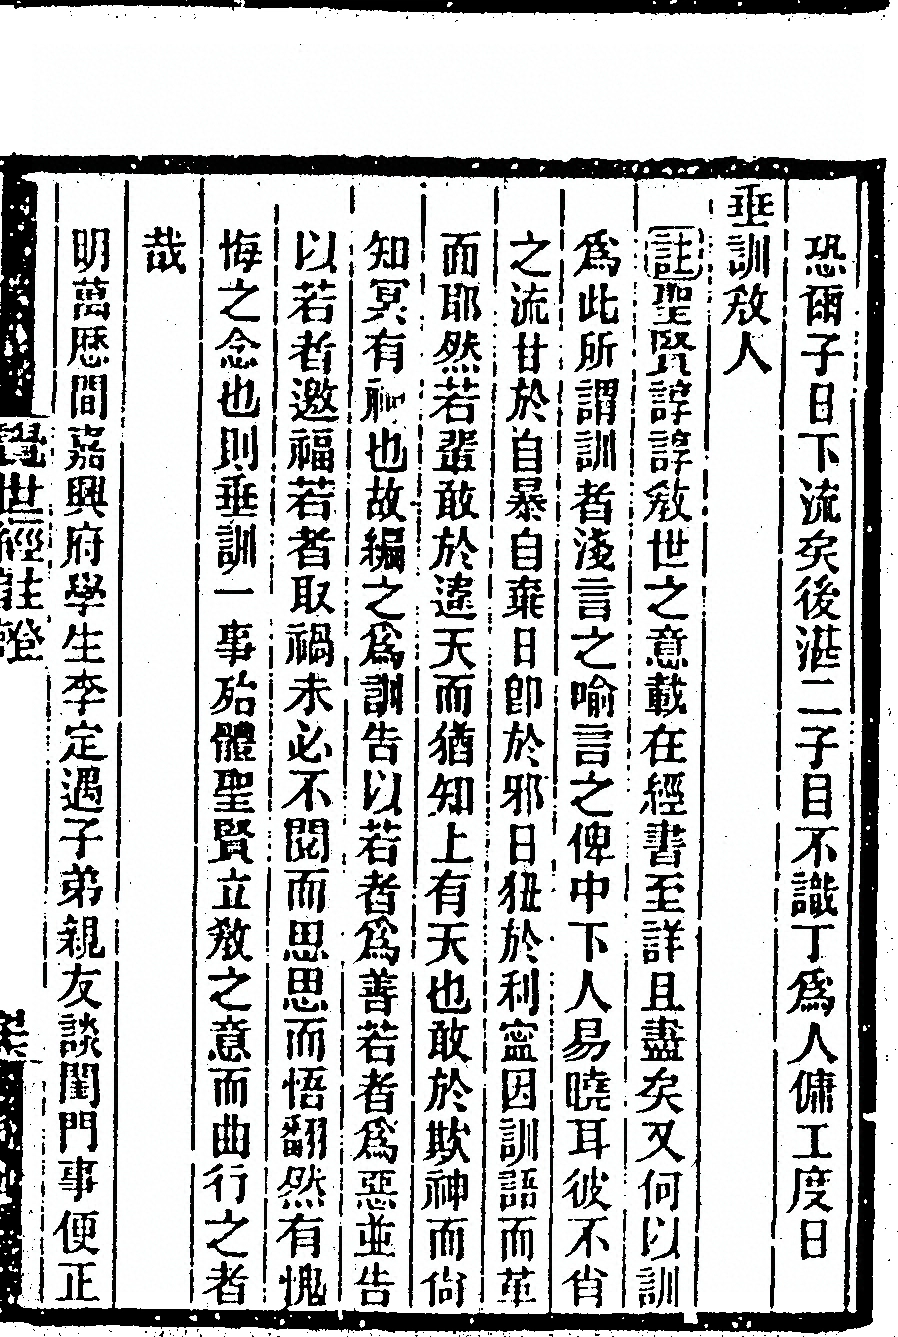 恐爾子日下流矣後湛二子目不識丁爲人傭工度日
垂訓敎人
註聖賢諄諄敎世之意載在經書至詳且盡矣又何以訓
爲此所謂訓者淺言之喻言之俾中下人易曉耳彼不肖
之流甘於自暴自棄日卽於邪日狃於利寍因訓語而革
而耶然若輩敢於違天而猶知上有天也敢於欺神而尙
知冥有神也故編之爲訓告以若者爲善若者爲惡並告
以若者邀福若者取禍未必不閱而思思而悟翻然有愧
悔之念也則垂訓一事殆體聖賢立敎之意而曲行之者
哉
明萬歷間嘉興府學生李定遇子弟親友談閨門事便正
覺世經註證